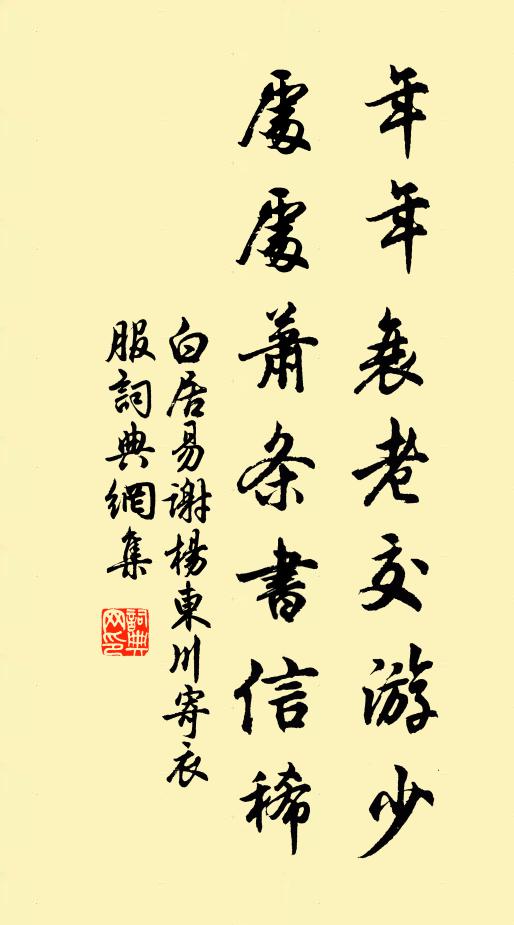 年年衰老交游少
處處蕭条書信稀
白居易謝楊東川寄衣
服詞典網集
詞典
网印